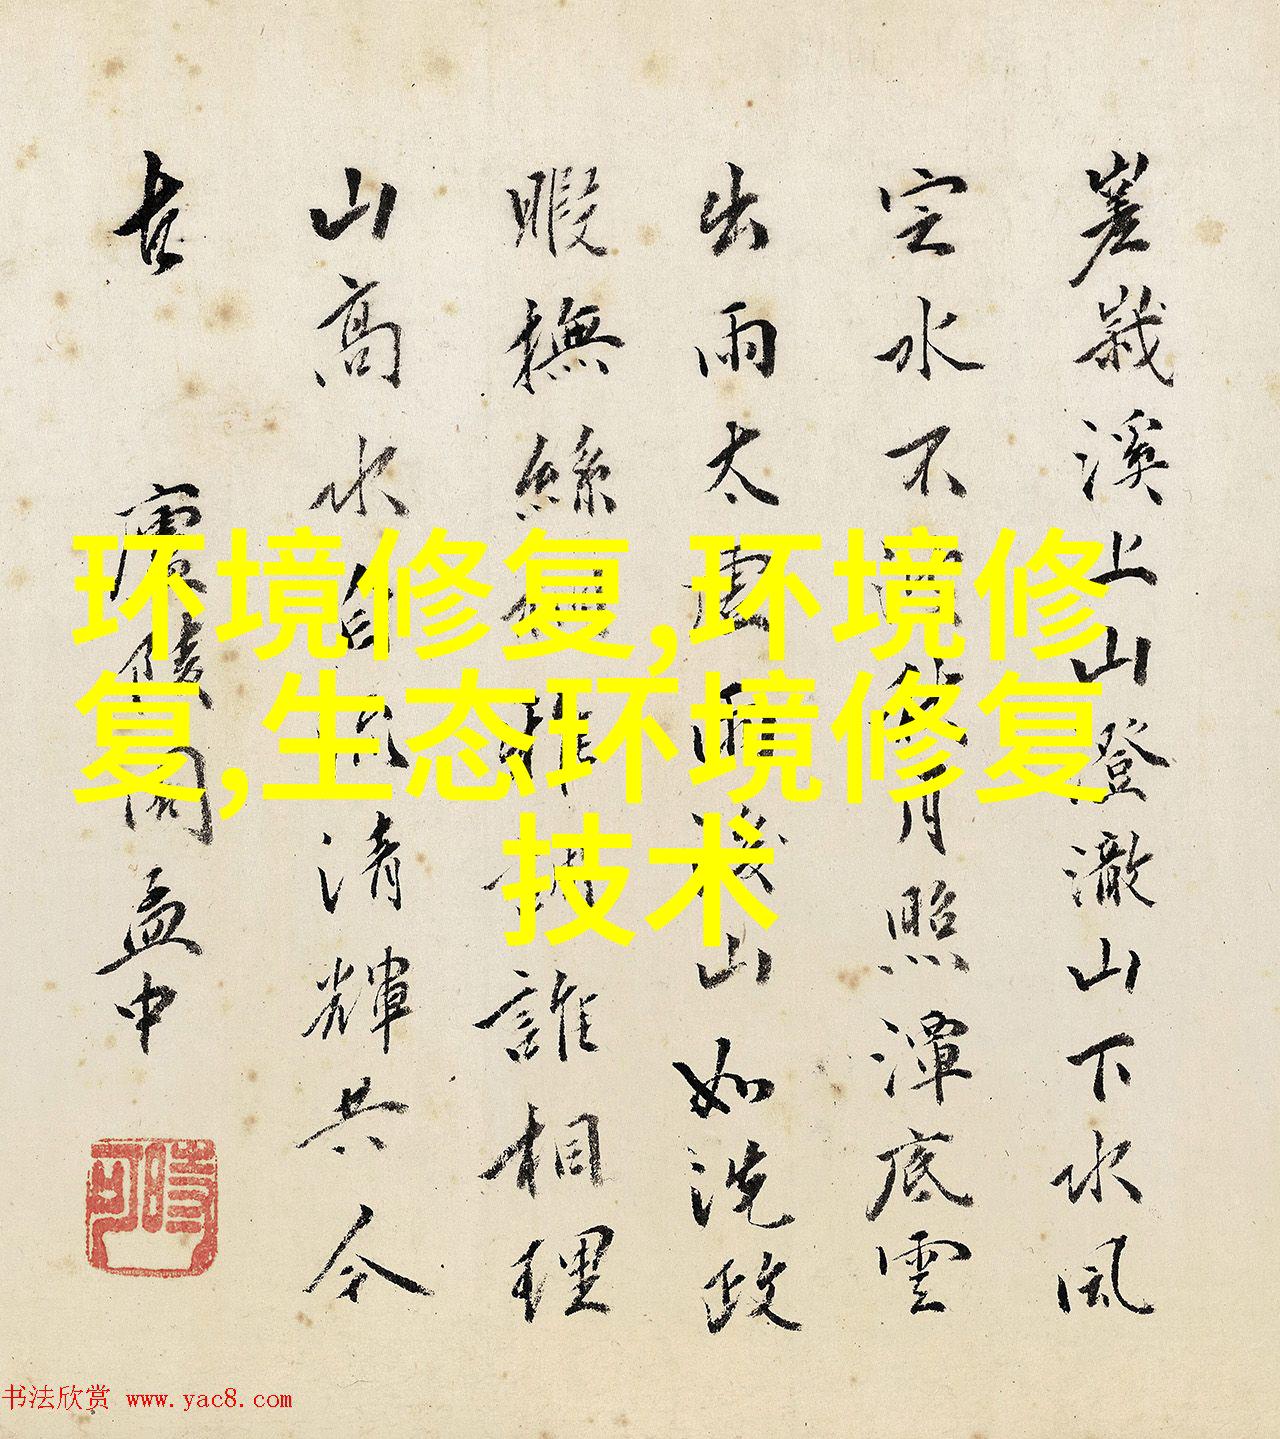 嵳峩溪上山澄澈山下水風
定水不月照潭底雲
出雨太虛雨後山如洗政
暇撫絲桐雅調誰相理
山高水自清輝共今
古
陵孟中
环境修复,环境修
复,生态环境修复
技术
书法欣赏 www.yac8.com